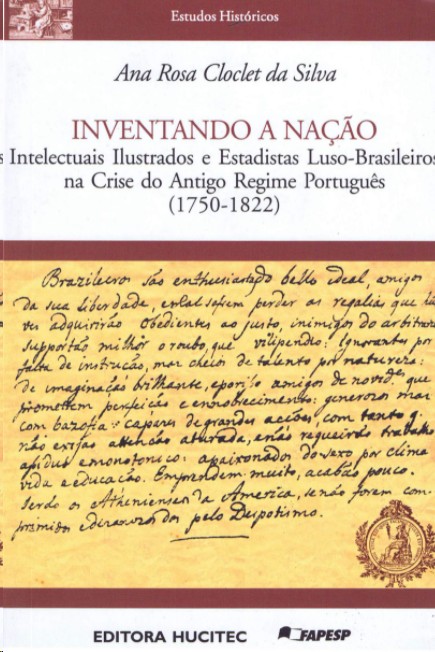 Estudos Históricos
Ana Rosa Cloclet da Silva
INVENTANDO A NAÇÃO
s Intelectuais Ilustrados e Estadistas Luso-Brasileiros
na Crise do Antigo Regime Português
(1750-1822)
Brazileiros são enthusiastas do bello ideal, amigos
da sua liberdade, e mal sofrem perder as regalias que
ves adquirirão obedientes ao justo, inimigos do arbitrario
supportão milhor o roubo, que vilipendio: Ignorantes por
falta de instrução, mas cheios de talento por natureza:
de imaginação brilhante, e por isso amigos de novid.es que
promettem perfeição e ennobrecimento: generosos mas
com bazofia: capazes de grandes acções, com tanto q
não exijas attenção aturada, e não requeirão trabalho
assiduo e monotonico: apaixonados do sexo por clima
vida e educação. Emprendem muito, acabão pouco.
Serão os Athenienses da America, se não forem com-
primidos e pelo Despotismo.
EDITORA HUCITEC
FAPESP